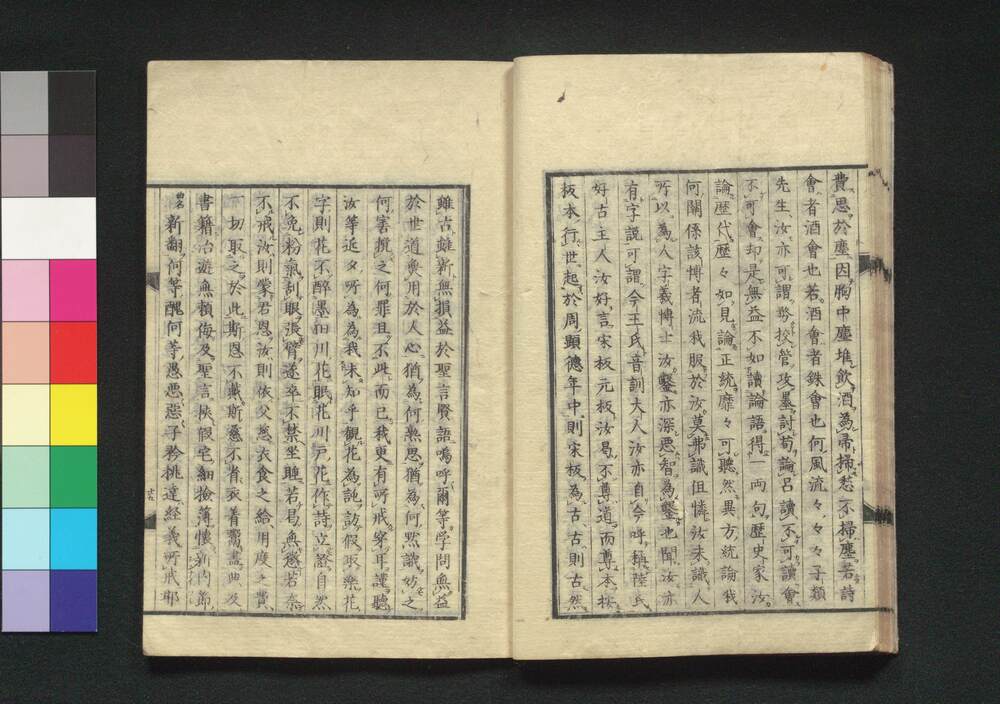 費思於塵因胸中塵堆飲酒為帚掃愁不掃塵若詩
會者酒會也若酒會者銖會也何風流々々々子類
先生汝亦可謂勞校管攻墨討荀論呂讀不可讀會
不可會却是無益不如讀論語得一両句歴史家汝
論歴代歴々如見論正統靡々可聽然異方統論我
何關係該博者流我服於汝莫弗識但憐汝未識人
所以為人字義博士汝鑿亦深悪智為鑿也聞汝亦
有字説可謂今王氏音訓大人汝亦自今呼稱陸氏
好古主人汝好言宋板元板汝曷不尊道而尊本板
板本行世起於周顕徳年中則宋板為古古則古然
雖古雖新無損益於聖言賢語嗚呼爾等学問無益
於世道奠用於人心猶為何熟思猶為何黙識妨之
何害撹之何罪且不此而已我更有所戒穿耳謹聽
汝等近夕所為為我未知乎観花為訛訪假取樂花
字則花不醉墨田川花眠花川戸花作詩立證自然
不免粉氣刮眼張臂遂卒不禁坐睡若曷無愆若
不戒汝則蒙君恩汝則依父慈衣食之給用度之費
一切取之於此斯恩不戴斯慈不省衣着齋盡典及
書籍冶遊無頼侮及聖言挾假宅細撿薄懐新内節
新翻何等醜何等愚悪悪子矜挑達経義所戒耶